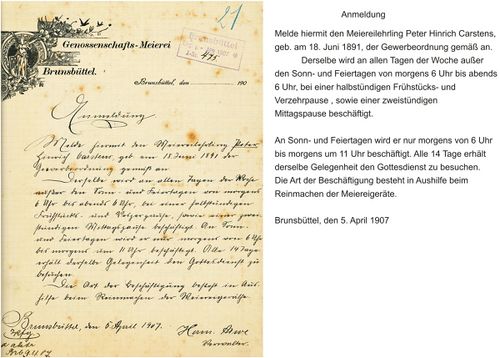 21
Genossenschafts-Meierei
Brunsbüttel.
Brunsbüttel
475
Brunsbüttel, den 190
Anmeldung
Melde hiermit den Meiereilehrling Peter
Hinrich Carstens, geb. am 18 Juni 1891 der
Gewerbeordnung gemäß an.
Derselbe wird an allen Tagen der Woche
außer den Sonn- und Feiertagen von morgens
6 Uhr bis abends 6 Uhr, bei einer halbstündigen
Frühstücks- und Verzehrpause, sowie einer zwei-
stündigen Mittagspause beschäftigt. An Sonn-
und Feiertagen wird er nur morgens von 6 Uhr
bis morgens um 11 Uhr beschäftigt. Alle 14 Tage
erhält derselbe Gelegenheit den Gottesdienst zu
besuchen.
Die Art der Beschäftigung besteht in Aus-
hilfe beim Reinmachen der Meiereigeräthe
Brunsbüttel, den 5 April 1907.
Verwalter.
Anmeldung
Melde hiermit den Meiereilehrling Peter Hinrich Carstens,
geb. am 18. Juni 1891, der Gewerbeordnung gemäß an.
Derselbe wird an allen Tagen der Woche außer
den Sonn- und Feiertagen von morgens 6 Uhr bis abends
6 Uhr, bei einer halbstündigen Frühstücks- und
Verzehrpause , sowie einer zweistündigen
Mittagspause beschäftigt.
An Sonn- und Feiertagen wird er nur morgens von 6 Uhr
bis morgens um 11 Uhr beschäftigt. Alle 14 Tage erhält
derselbe Gelegenheit den Gottesdienst zu besuchen.
Die Art der Beschäftigung besteht in Aushilfe beim
Reinmachen der Meiereigeräte.
Brunsbüttel, den 5. April 1907